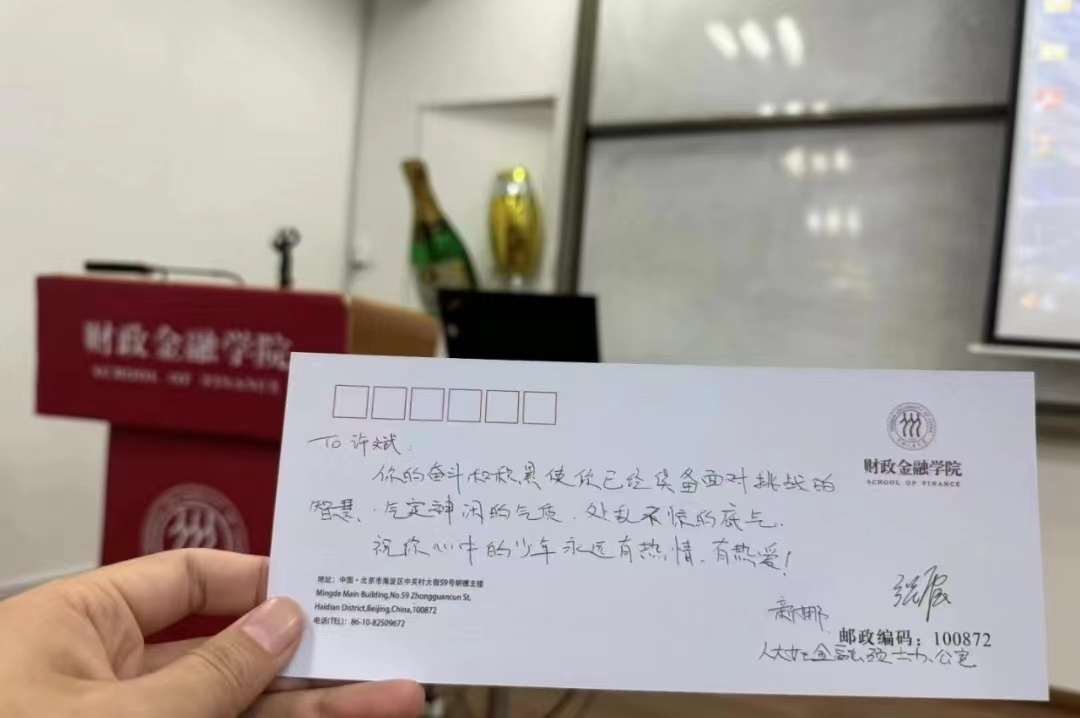 财政金融学院
SCHOOL OF FINANCE
To 许斌:
你的奋斗和积累使你已经具备面对挑战的
智慧、气定神闲的气质、处乱不惊的底气.
祝你心中的少年永远有热情,有热爱!
财政金融学院
SCHOOL OF FINANCE
地址:中国·北京市海淀区中关村大街59号明德主楼
Mingde Main Building,No.59 Zhongguancun St,
Haidian District,Beijing,China,100872
电话(TEL):86-10-82509672
邮政编码:100872
金融硕士办公室